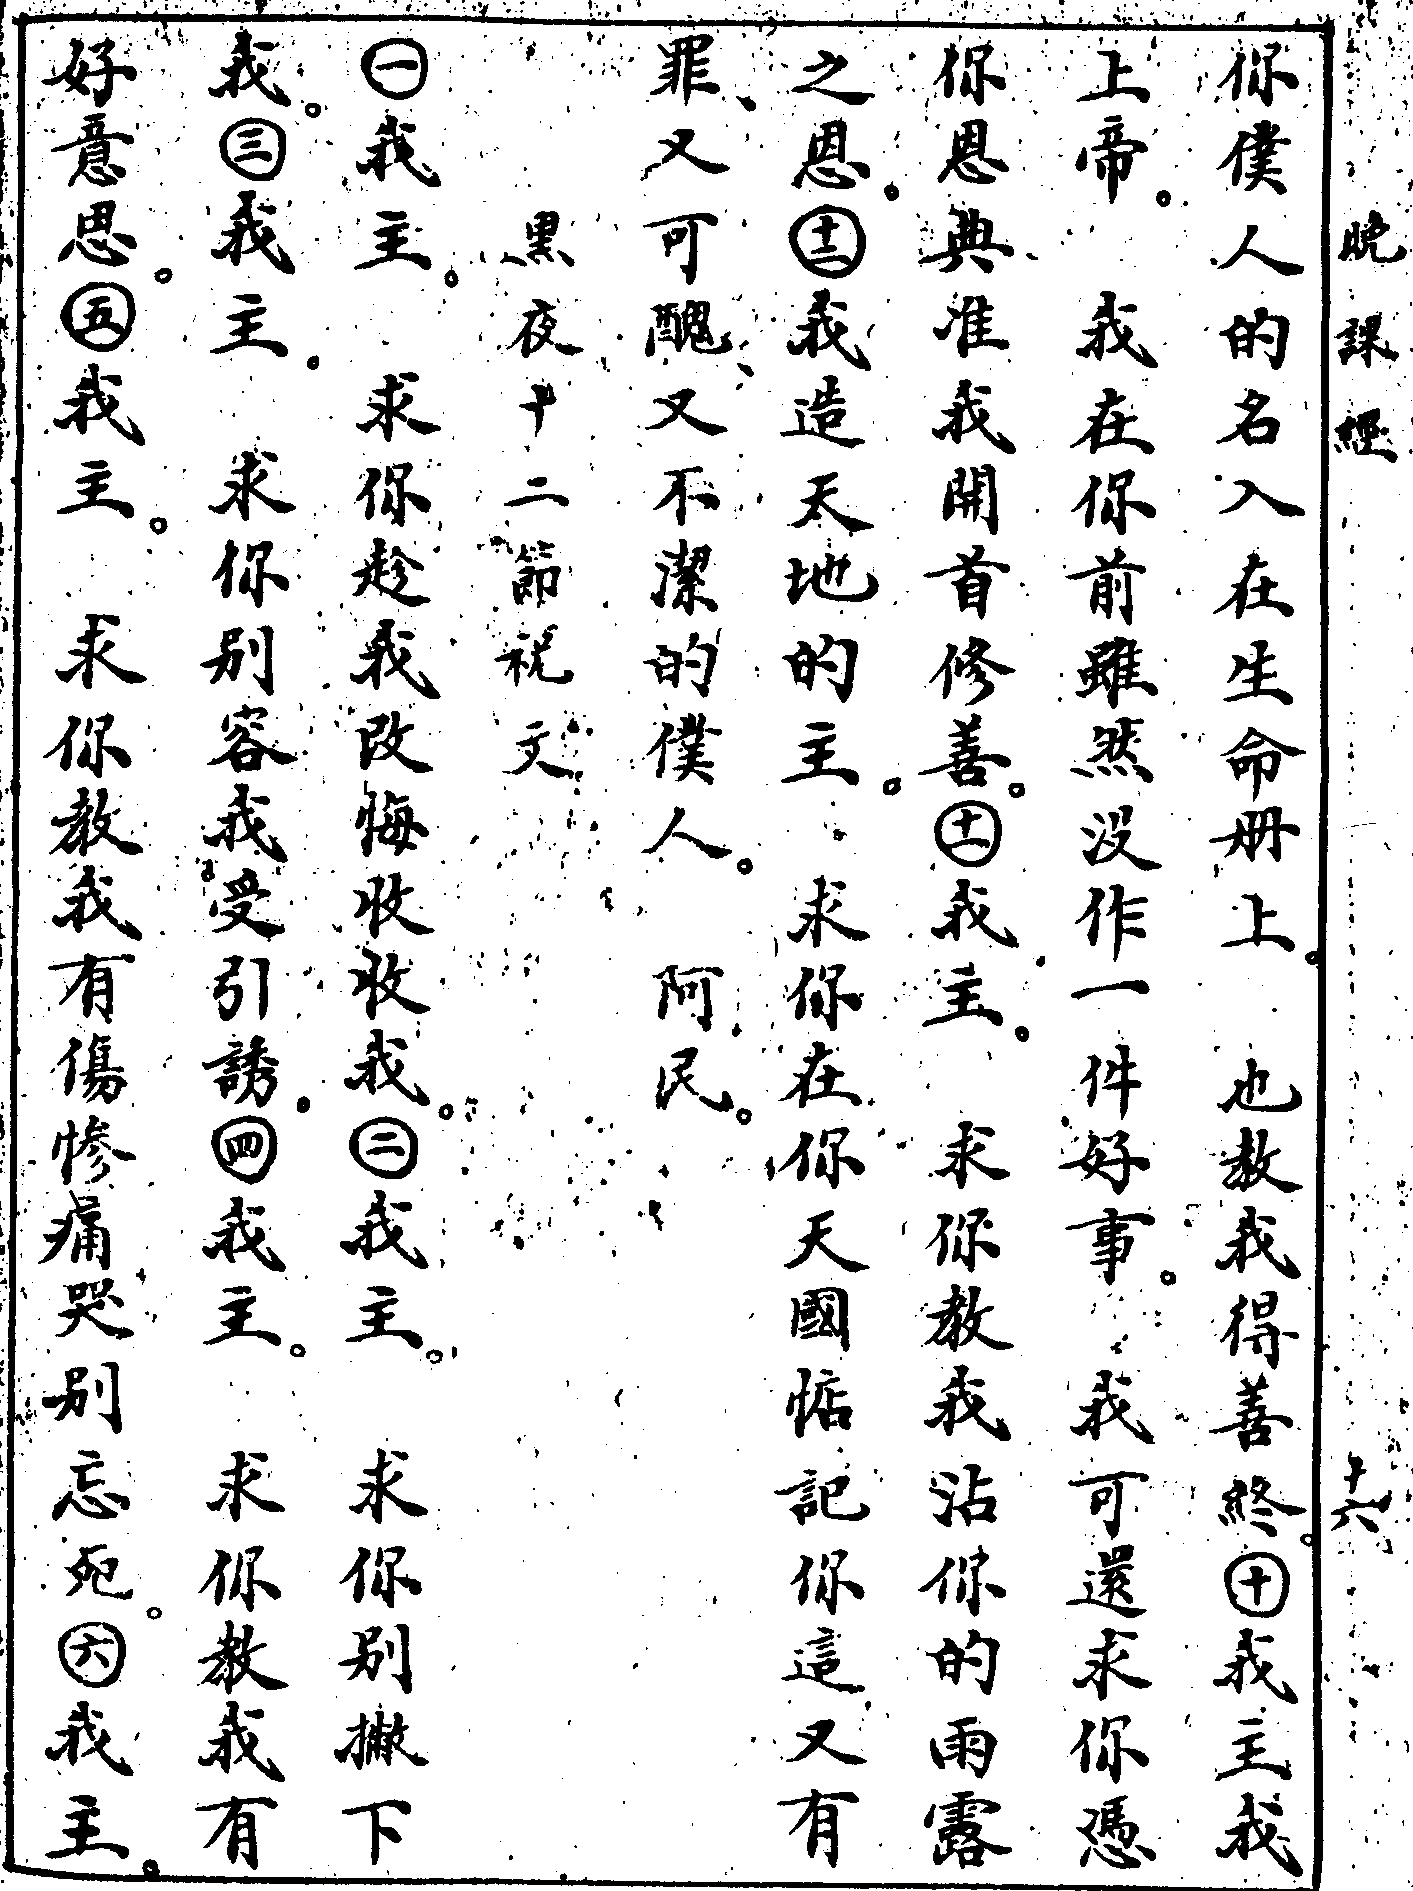 晚課經 十六
你僕人的名入在生命册上。也教我得善終。㊉我主我
上帝。我在你前雖然没作一件好事。我可還求你憑
你恩典准我開首修善。⑪我主。求你教我沾你的雨露
之恩。⑫我造天地的主。求你在你天國惦記你這又有
罪、又可醜、又不潔的僕人。阿民。
黑夜十二節祝文
㊀我主。求你趁我改悔收收我。㊁我主。求你别撇下
我。㊂我主。求你别容我受引誘。㊃我主。求你教我有
好意思。㊄我主。求你教我有傷慘痛哭别忘死。㊅我主。